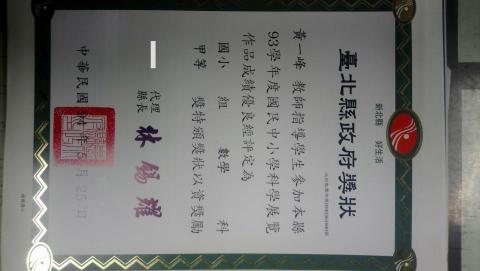 新北縣 好生活
臺北縣政府獎狀
黃一峰 教師指導學生參加本縣
93學年度國民中小學科學展覽
作品成績優良經評定為
國小 組 數學 科
甲等 獎特頒獎狀以資獎勵
代理
縣長 林錫耀
中華民國 年 月 25 日